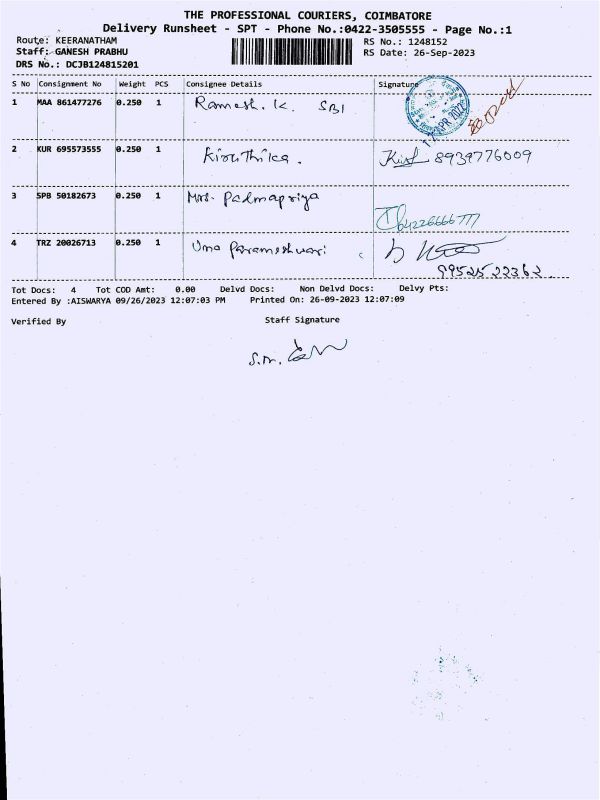 THE PROFESSIONAL COURIERS, COIMBATORE
Delivery Runsheet - SPT - Phone No.:0422-3505555 - Page No.:1
Route: KEERANATHAM RS No.: 1248152
Staff: GANESH PRABHU RS Date: 26-Sep-2023
DRS No.: DCJB124815201
S No Consignment No Weight PCS Consignee Details Signature
1 MAA 861477276 0.250 1 Ramesh.K. SBI
2 KUR 695573555 0.250 1 Kiruthika. 8939776009
3 SPB 50182673 0.250 1 Mrs. Padmapriya
4 TRZ 20026713 0.250 1 Uma Parameshwari
9952522362
Tot Docs: 4 Tot COD Amt: 0.00 Delvd Docs: Non Delvd Docs: Delvy Pts:
Entered By :AISWARYA 09/26/2023 12:07:03 PM Printed On: 26-09-2023 12:07:09
Verified By Staff Signature